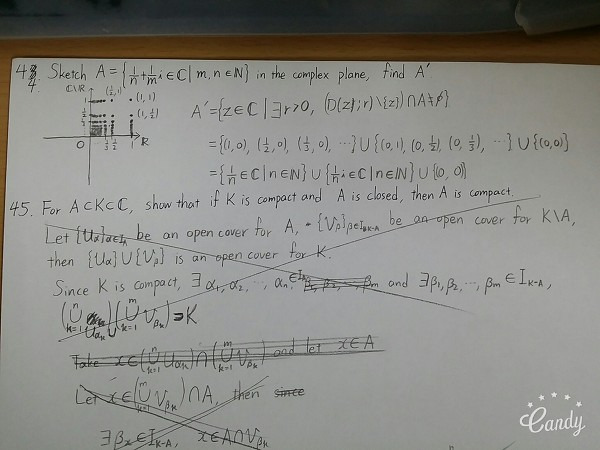 44. Sketch A = {1/n + 1/m i ∈ ℂ | m, n ∈ ℕ} in the complex plane, find A'
ℂ\ℝ
(1/2, 1)
1
(1, 1)
1/2
(1, 1/2)
1/3
0
1/3 1/2 1
ℝ
A' = {z ∈ ℂ | ∃ r > 0, (D(z; r) \ {z}) ∩ A ≠ ∅}
= {(1, 0), (1/2, 0), (1/3, 0), ...} ∪ {(0, 1), (0, 1/2), (0, 1/3), ...} ∪ {(0, 0)}
= {1/n ∈ ℂ | n ∈ ℕ} ∪ {1/n i ∈ ℂ | n ∈ ℕ} ∪ {(0, 0)}
45. For A ⊂ K ⊂ ℂ, show that if K is compact and A is closed, then A is compact.
Let {Uα}α∈I_A be an open cover for A, {Vβ}β∈I_K-A be an open cover for K\A,
then {Uα} ∪ {Vβ} is an open cover for K.
Since K is compact, ∃ α1, α2, ..., αn ∈ I_A β1, β2, ..., βm and ∃ β1, β2, ..., βm ∈ I_K-A,
(∪_{k=1}^{n} Uαk) ∪ (∪_{k=1}^{m} Vβk) ⊃ K
Take x ∈ (∪_{k=1}^{n} Uαk) ∩ (∪_{k=1}^{m} Vβk) and let x ∈ A
Let x ∈ (∪_{k=1}^{m} Vβk) ∩ A, then since
∃ βk ∈ I_K-A, x ∈ A ∩ Vβk
Candy